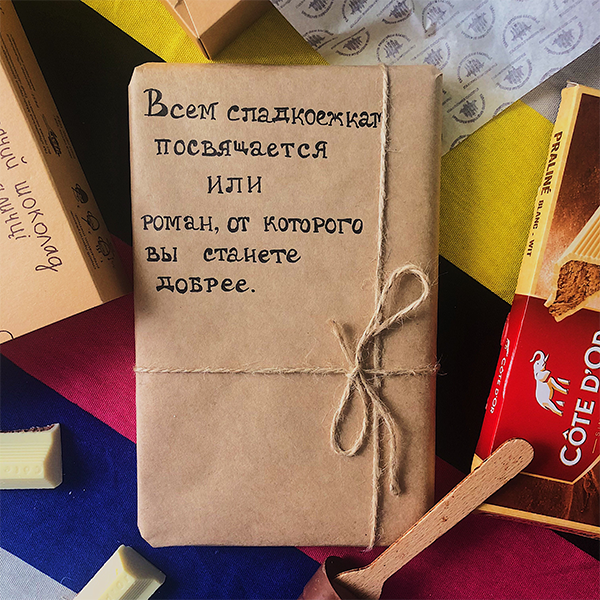 Всем сладкоежкам
посвящается
или
роман, от которого
вы станете
добрее.
PRALINÉ BLANC - WIT
CÔTE D'OR
CÔTE D'OR
шоколад